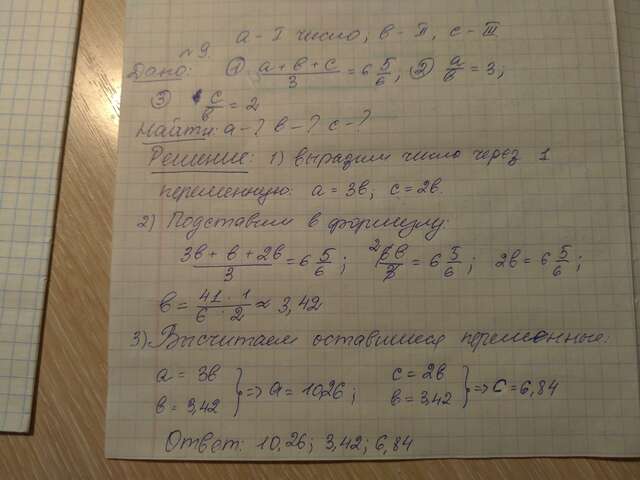 №9. a - I число, в - II, с - III
Дано: ① (a + в + с)/3 = 6 5/6; ② a/в = 3;
③ с/в = 2
Найти: a - ? в - ? с - ?
Решение: 1) выразим число через 1
переменную: a = 3в; с = 2в
2) Подставим в формулу:
(3в + в + 2в)/3 = 6 5/6; 6в/3 = 6 5/6; 2в = 6 5/6;
в = (41 · 1)/(6 · 2) ≈ 3,42
3) Высчитаем оставшиеся переменные:
a = 3в
в = 3,42 } => a = 10,26; с = 2в
в = 3,42 } => с = 6,84
Ответ: 10,26; 3,42; 6,84